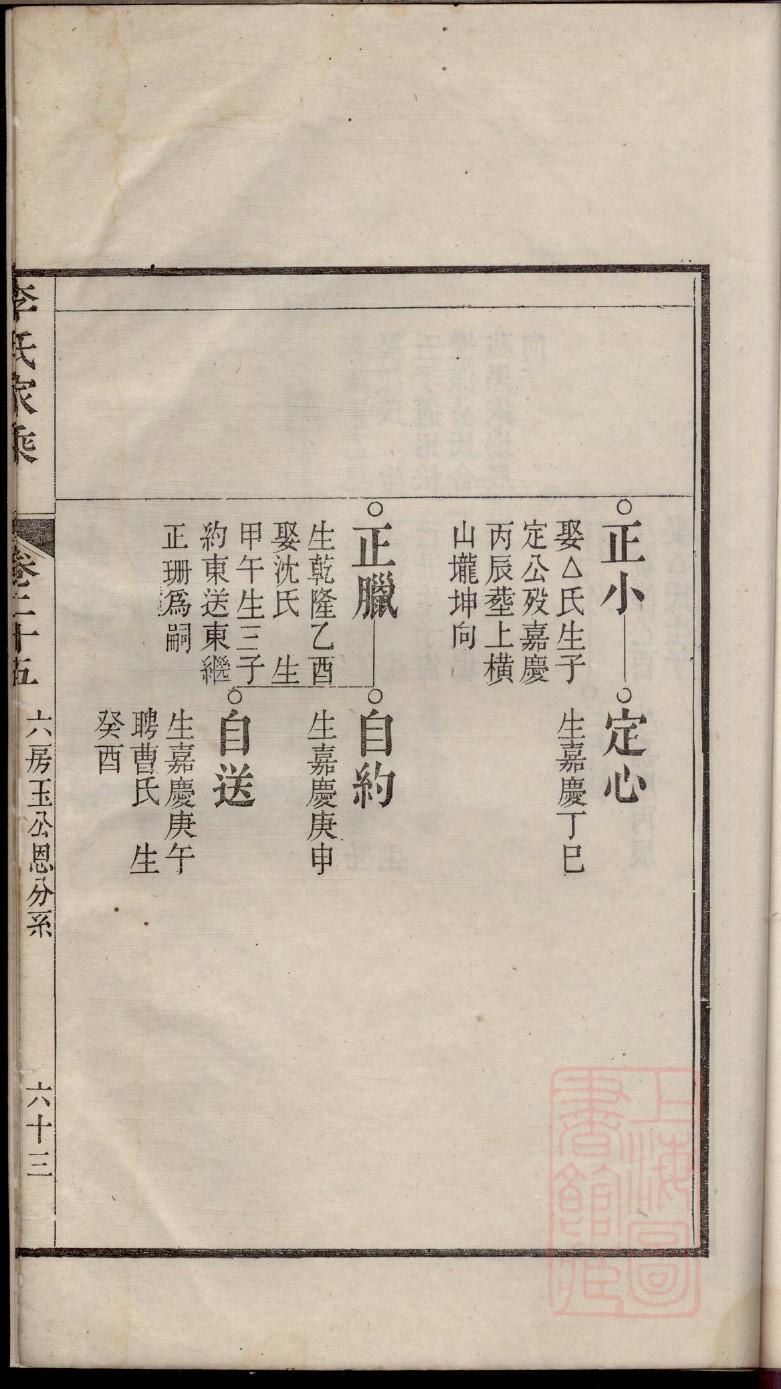 正小
娶△氏生子
定公歿嘉慶
丙辰塟上橫
山壠坤向
定心
生嘉慶丁巳
正臘
生乾隆乙酉
娶沈氏 生
甲午生三子
約東送東繼
正珊爲嗣
自約
生嘉慶庚申
自送
生嘉慶庚午
聘曹氏 生
癸酉
李氏家乘
卷二十五
六房玉公恩分系
六十三
上海圖
書館藏